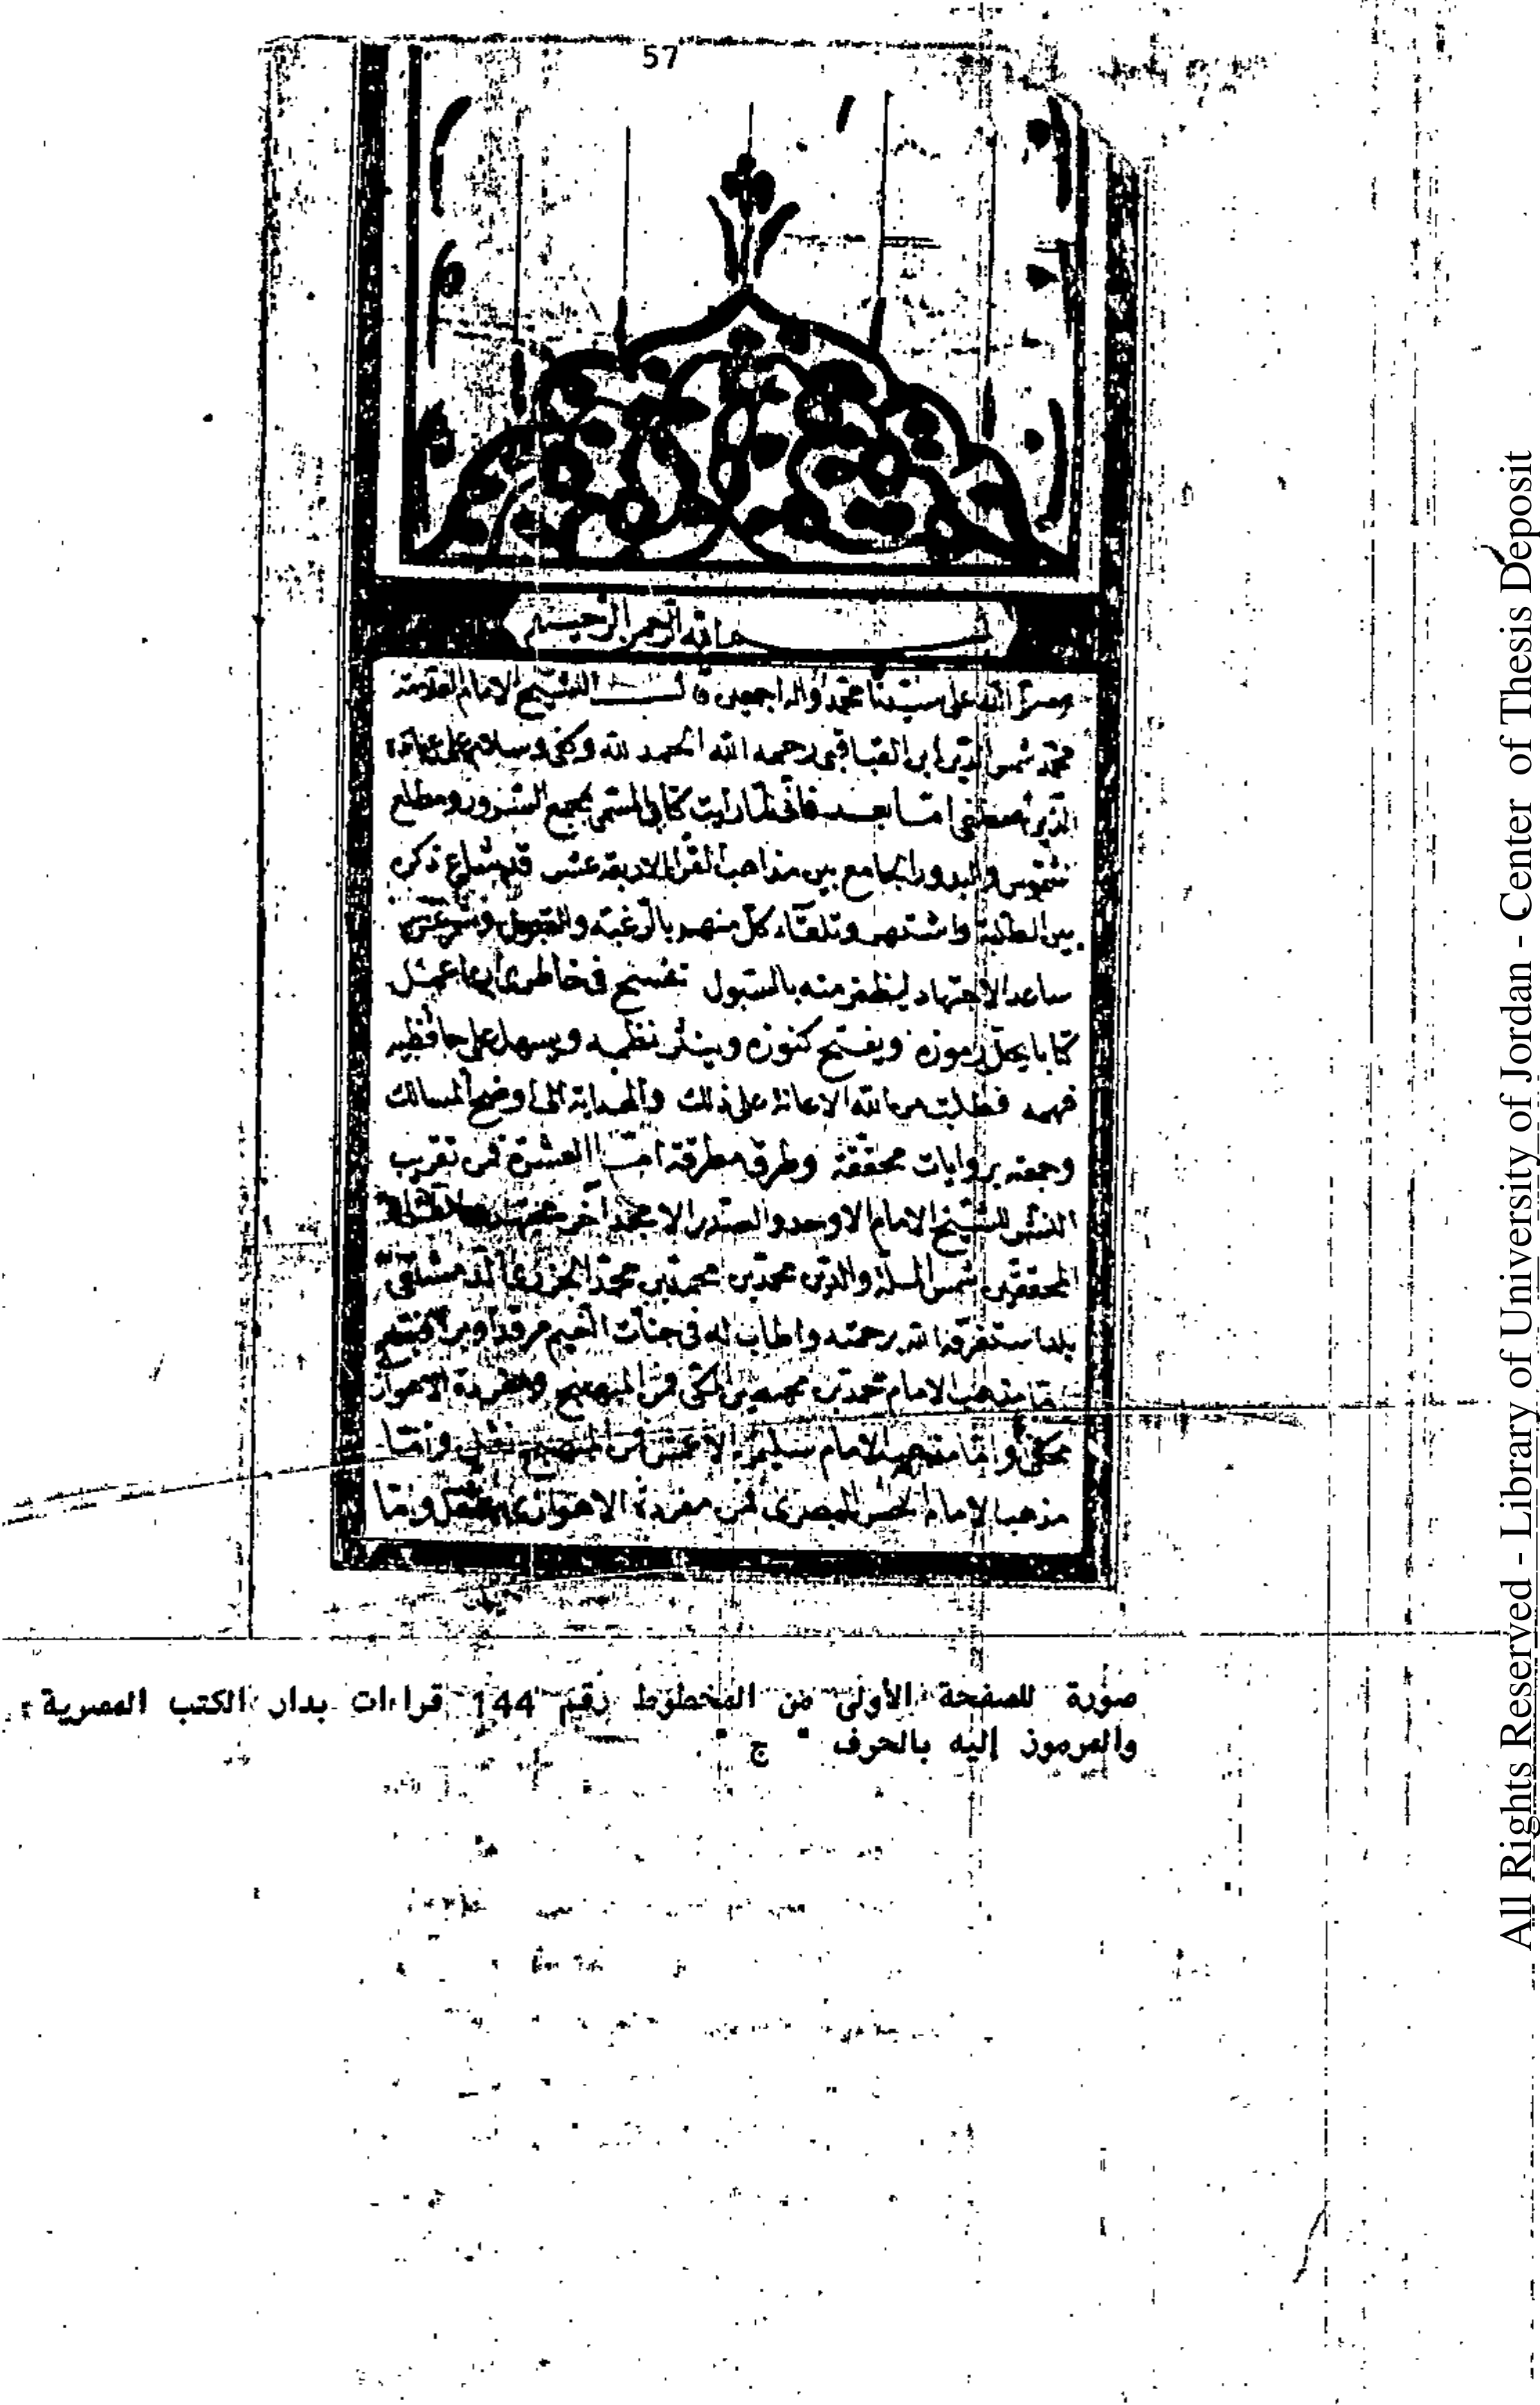 57
بسم الله الرحمن الرحيم
وصلى الله على سيدنا محمد واله اجمعين قال الشيخ الامام العلامة
محمد شمس الدين ابن القباقبى رحمه الله الحمد لله وكفى وسلام على عباده
الذين اصطفى امّا بعد فانّى لمّا رايت كتابى المسمى بمجمع السّرور ومطلع
شموس والبدور الجامع بين مذاهب القرا الاربعة عشر قد شاع ذكره
بين الطلبة واشتهر وتلقّاه كلّ منهم بالرّغبة والقبول وشمر عن
ساعد الاجتهاد ليظفر منه بالسّول تفسح فى خاطرى ان اعمل
كتابا يحلّ رموزه ويفتح كنوزه وينثر نظمه ويسهل على حافظيه
فهمه فطلبت من الله الاعانة على ذلك والهداية الى اوضح المسالك
وجمعته بروايات محقّقة وطرق مطرقة امّا العشرة فمن تقريب
النشر للشيخ الامام الاوحد والصّدر الامجد آخر
المحققين شمس الملة والدّين محمد بن محمد بن محمد الجزرى الدمشقى
بلدا ستغرقه الله برحمته واطاب له فى جنات النّعيم مرقدا ومن
مذهب الامام محمد بن محيصن المكى فمن المبهج ومفردة الاهواز
محكى وامّا مذهب الامام سليمن الاعمش فمن المبهج نقل وامّا
مذهب الامام الحسن البصرى فمن مفردة الاهوازى وامّا
صورة للصفحة الأولى من المخطوط رقم 144 قراءات بدار الكتب المصرية
والمرموز إليه بالحرف " ج "
All Rights Reserved - Library of University of Jordan - Center of Thesis Deposit